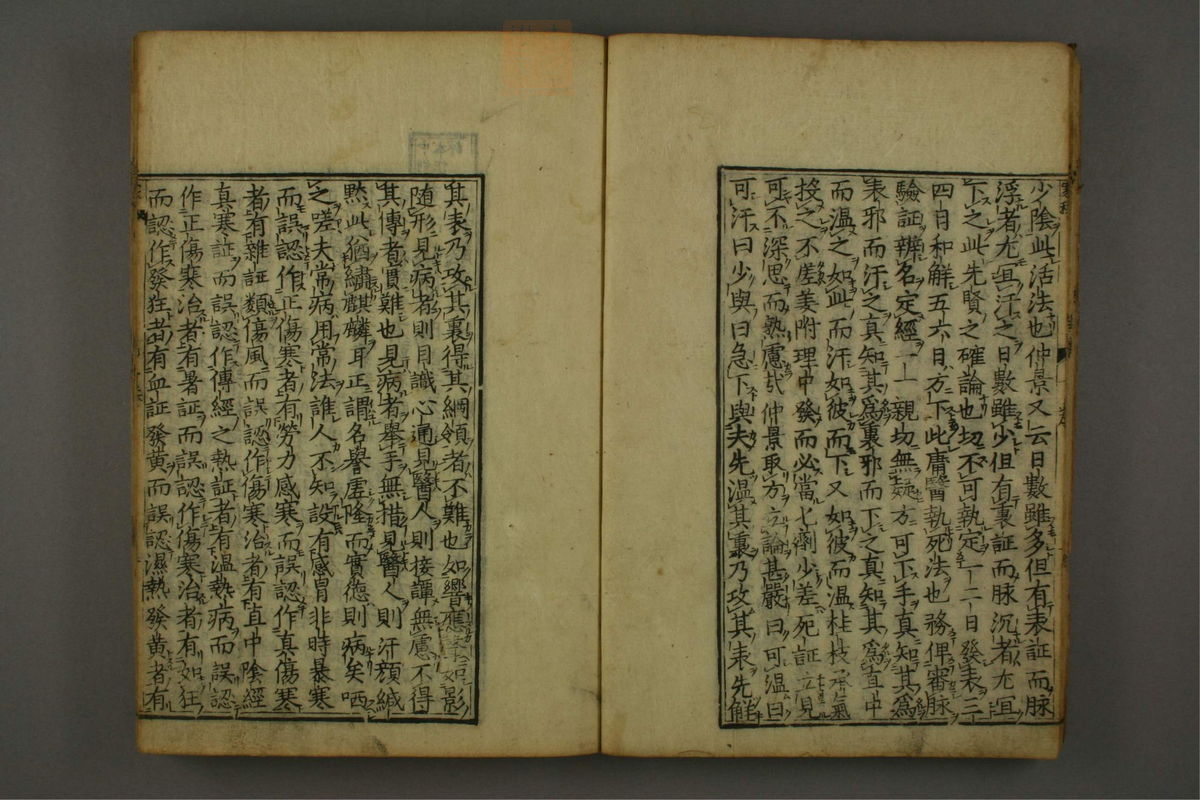 少陰此活法也仲景又云日數雖多但有表証而脉
浮者尤宜汗之日數雖少但有裏証而脉沉者尤宜
下之此先賢之確論也切不可執定一二日發表三
四日和解五六日方下此庸醫執死法也務俾審脉
驗証辨名定經一一親切無疑方可下手真知其為
表邪而汗之真知其為裏邪而下之真知其為直中
而温之如此而汗如彼而下又如彼而温桂枝承氣
投之不差姜附理中發而必當匕劑少差死証立見
可不深思而熟慮哉仲景取方立論甚嚴曰可温曰
可汗曰少與曰急下與夫先温其裏乃攻其表先解
其表乃攻其裏得其綱領者不難也如響應聲如影
随形見病者則目識心通見醫人則接譚無慮不得
其傳者實難也見病者舉手無措見醫人則汗顔緘
黙此猶繡麒麟耳正謂名譽虚隆而實德則病矣哂
之嗟夫常病用常法誰人不知設有感冒非時暴寒
而誤認作正傷寒者有勞力感寒而誤認作真傷寒
者有雜証類傷風而誤認作傷寒治者有直中陰經
真寒証而誤認作傳經之熱証者有温熱病而誤認
作正傷寒治者有暑証而誤認作傷寒治者有如狂
而認作發狂者有血証發黄而誤認濕熱發黄者有